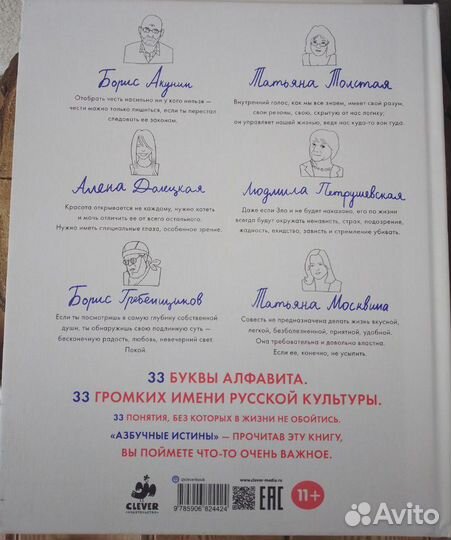 Борис Акунин
Отобрать честь насильно ни у кого нельзя –
чести можно только лишиться, если ты перестал
следовать ее законам.
Татьяна Толстая
Внутренний голос, как мы все знаем, имеет свой разум,
свои резоны, свою, скрытую от нас логику;
он управляет нашей жизнью, ведя нас куда-то вон туда.
Алена Долецкая
Красота открывается не каждому, нужно хотеть
и мочь отличить ее от всего остального.
Нужно иметь специальные глаза, особенное зрение.
Людмила Петрушевская
Даже если Зло и не будет наказано, его по жизни
всегда будут окружать ненависть, страх, подозрения,
жадность, ехидство, зависть и стремление убивать.
Борис Гребенщиков
Если ты посмотришь в самую глубину собственной
души, ты обнаружишь свою подлинную суть —
бесконечную радость, любовь, невечерний свет.
Покой.
Татьяна Москвина
Совесть не предназначена делать жизнь вкусной,
легкой, безболезненной, приятной, удобной.
Она требовательна и довольно властна.
Если ее, конечно, не усыпить.
33 БУКВЫ АЛФАВИТА.
33 ГРОМКИХ ИМЕНИ РУССКОЙ КУЛЬТУРЫ.
33 ПОНЯТИЯ, БЕЗ КОТОРЫХ В ЖИЗНИ НЕ ОБОЙТИСЬ.
«АЗБУЧНЫЕ ИСТИНЫ» — ПРОЧИТАВ ЭТУ КНИГУ,
ВЫ ПОЙМЕТЕ ЧТО-ТО ОЧЕНЬ ВАЖНОЕ.
CLEVER
ИЗДАТЕЛЬСТВО
@cleverbook
9 785906 824424
www.clever-media.ru
EAC
11+
Avito